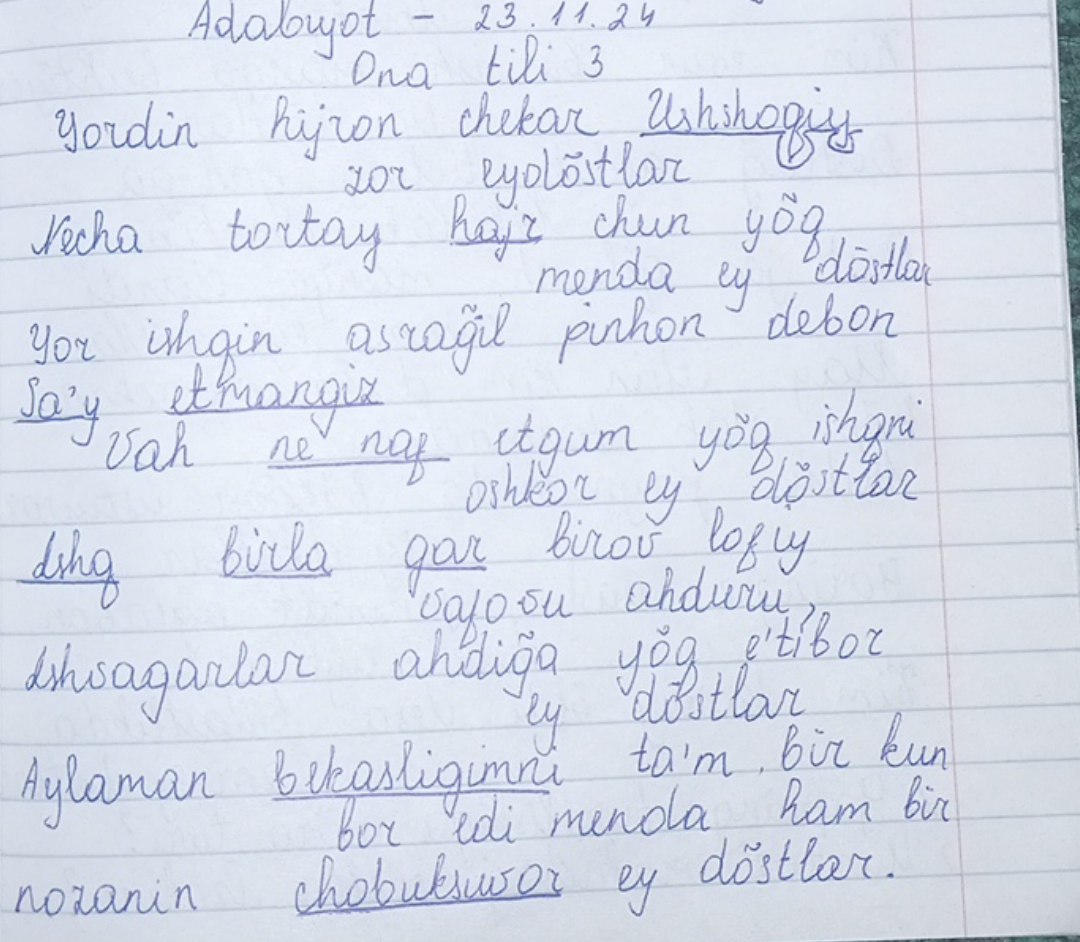 Adabiyot - 23.11.24
Ona tili 3
Yordin hijron chekar Ushshoqiy
zor eydõstlar
Necha tortay hajr chun yõq
menda ey dõstlar
Yor ishqin asrağil pinhon debon
Sa'y etmangiz
Vah ne naf etgum yõq ishqni
oshkor ey dõstlar
Ishq birla gar birov lofiy
vafosu ahduru,
Ishvagarlar ahdiğa yõq e'tibor
ey dõstlar
Aylaman bekasligimni ta'm. bir kun
bor edi menda ham bir
nozanin chobuksuvor ey dõstlar.